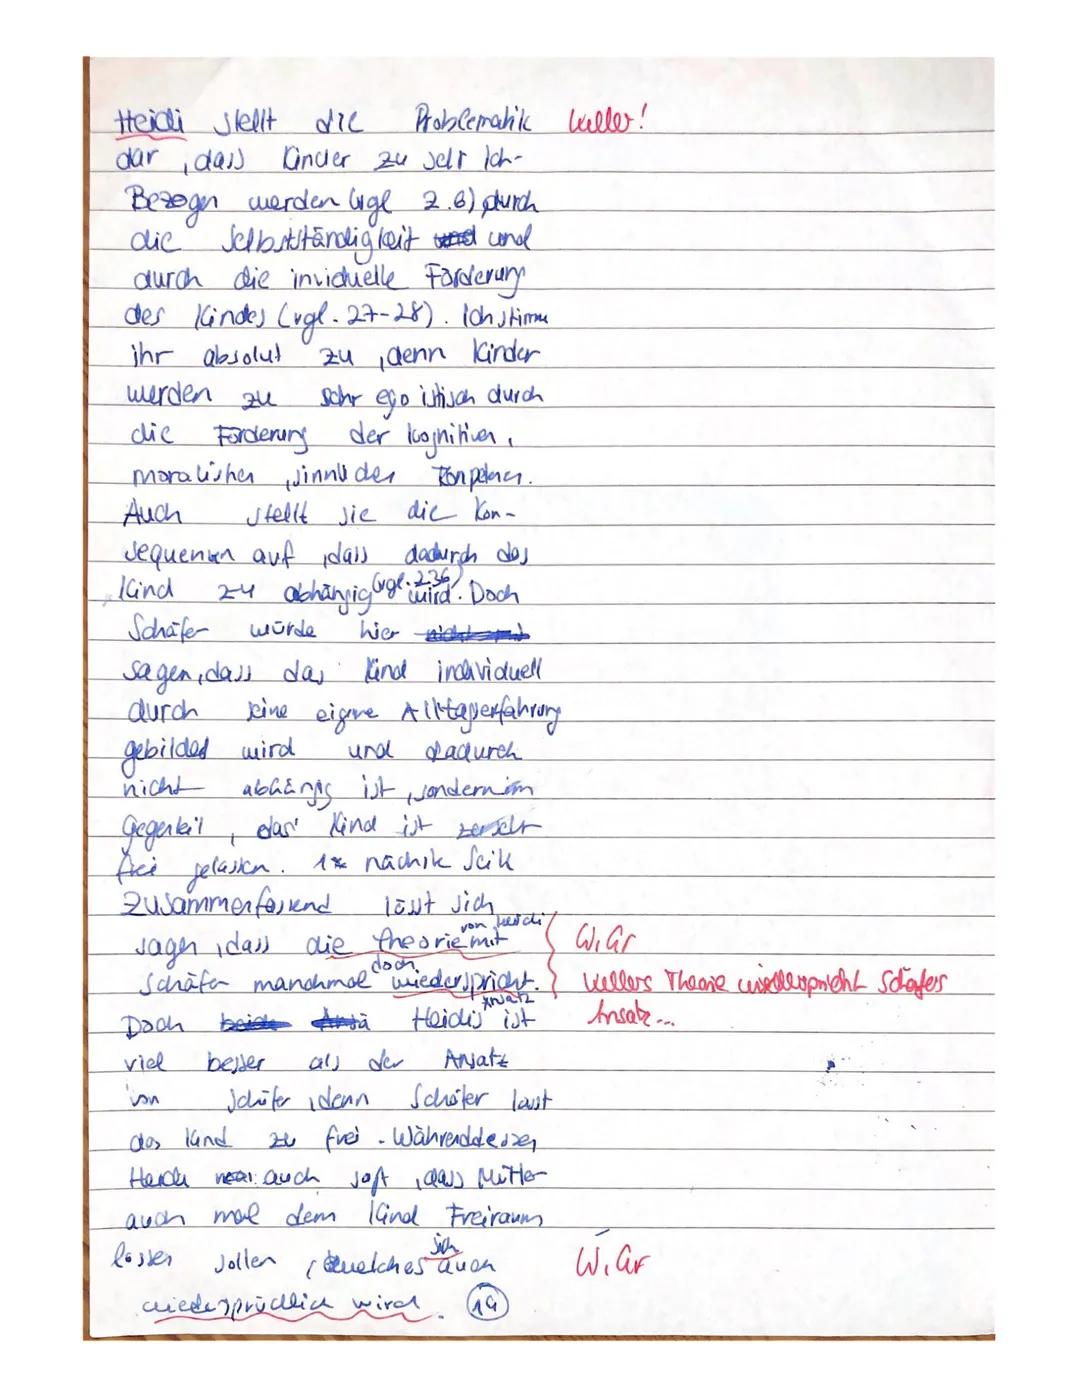 Heidi stellt die Problematik Keller!
dar, dass Kinder zu sehr Ich-
Bezogen werden (vgl Z.6) durch
die Selbstständigkeit und
durch die inviduelle Förderung
des Kindes (vgl. 27-28). Ich stimme
ihr absolut zu, denn Kinder
werden zu sehr egoistisch durch
die Förderung der kognitiven,
moralischen, sinnlichen Konpetenz.
Auch stellt sie die Kon-
sequenzen auf, dass dadurch das
Kind zu abhängig (vgl. Z36) wird. Doch
Schäfer würde hier
sagen, dass das Kind individuell
durch seine eigene Alltagserfahrung
gebildet wird und dadurch
nicht abhängig ist, sondern im
Gegenteil, das Kind ist
frei gelassen. nächste Seite
Zusammenfassend lässt sich
sagen, dass die Theorie von Heidi mit W, Gr
Schäfer manchmal doch wiederspricht. Kellers Theorie wiederspricht Schäfers
Doch Heidis Ansatz ist Ansatz...
viel besser als der Ansatz
von Schäfer, denn Schäfer lässt
das Kind zu frei. Währenddessen
Heidi auch sagt, dass Mütter
auch mal dem Kind Freiraum
lassen sollen, welches sich auch W, Gr
wiedersprüchlich wird.